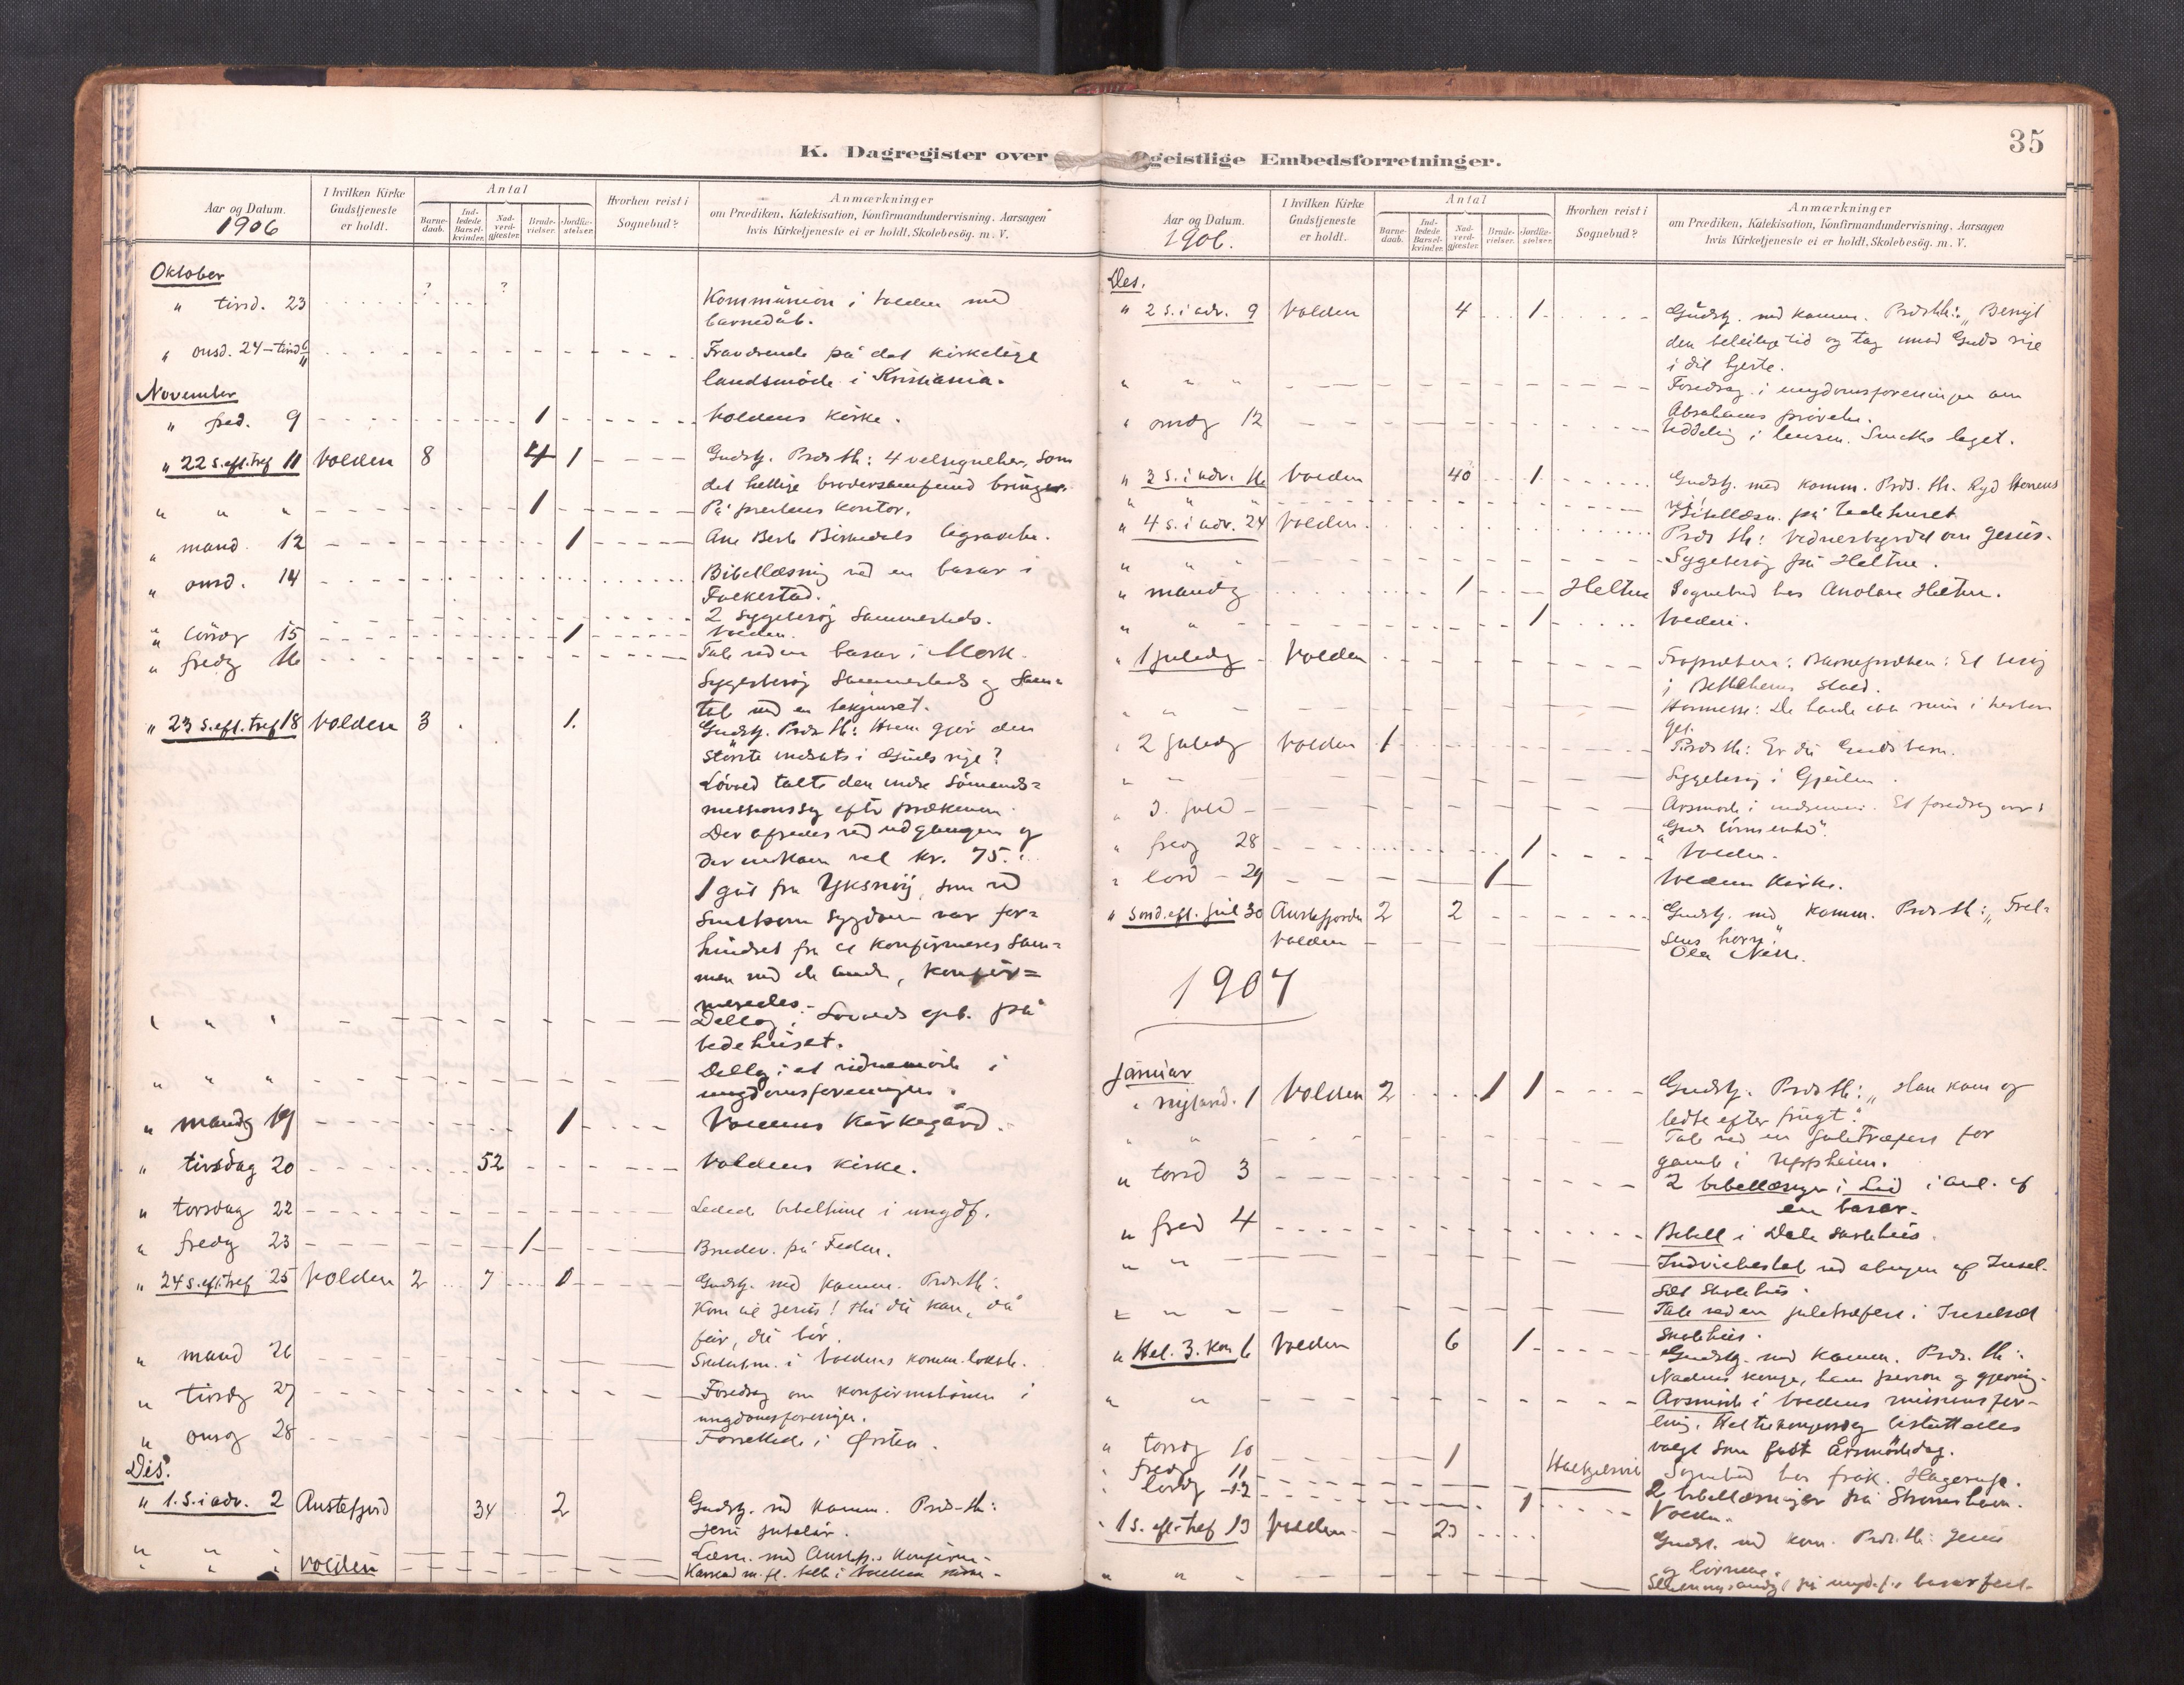 K. Dagregister over
Aar og Datum.
1906
I hvilken Kirke
Gudstjeneste
er holdt.
Antal
Barne-
daab.
Ind-
ledede
Barsel-
kvinder.
Nad-
verd-
gjæster.
Brude-
vielser.
Jordfæ-
stelser.
Hvorhen reist i
Sognebud?
Anmærkninger
om Prædiken, Katekisation, Konfirmandundervisning. Aarsagen
hvis Kirketjeneste ei er holdt. Skolebesög. m. V.
Oktober
" tirsd. 23 ? ? Kommunion i Volden med
barnedåb.
" onsd. 24 – tirsd 6/11 Fraværende på det kirkelige
landsmöde i Kristiania.
November
" fred. 9 1 Voldens kirke.
" 22 s. eft. tref 11 Volden 8 4 1 Gudstj. Præs th: 4 velsignelser, som
det hellige brodersamfund bringer.
" " " 1 På prestens kontor.
" mand. 12 1 Ane Berte Birkedals begravelse.
" onsd. 14 Bibellæsning ved en basar i
Folkestad.
2 sygebesög sammesteds.
" 15 1 Volden.
" fredg 16 Tale ved en basar i Mork.
Sygebesög sammesteds og sam-
tale med en
" 23 s. eft. tref 18 Volden 3 1. Gudstj. Præs th: Hvem gjör den
störste indsats i Guds rige?
Lövved talte den indre sömands-
missions sag efter prækenen.
Der ofredes ved udgangen og
der indkom vel kr. 75.
1 gut fra Yksnöy, som ved
smitsom sygdom var for-
hindret fra at konfirmeres sam-
men med de andre, konfir-
meredes.
" " " Deltog i Lövveds opb. på
bedehuset.
" " " Deltog i et vidnemöde i
ungdomsforeningen.
" mandg 19 1 Voldens Kirkegård.
" tirsdag 20 52 Voldens kirke.
" torsdag 22 Ledede bibeltime i ungdf.
" fredg 23 1 Brudev. på Feden.
" 24 s. eft. tref 25 Volden 2 7 1 Gudstj. med komm. Præs th:
Kom til Jesus! thi du kan, du
får, du bör.
" mand 26 Skolestm. i Voldens komm. lokale.
" tirsdg 27 Foredrag om konfirmationen i
ungdomsforeningen.
" onsg 28 Forrettede i Örsten.
Des.
" 1. S. i adv. 2 Austefjord 34 2 Gudstj. ved komm. Præs-th:
Jesu jubelår.
" " " Læsn. med Austefj. konfirm.
" " " Volden Karstad m. fl. talte i Volden kirke.
35
geistlige Embedsforretninger.
Aar og Datum.
1906.
I hvilken Kirke
Gudstjeneste
er holdt.
Antal
Barne-
daab.
Ind-
ledede
Barsel-
kvinder.
Nad-
verd-
gjæster.
Brude-
vielser.
Jordfæ-
stelser.
Hvorhen reist i
Sognebud?
Anmærkninger
om Prædiken, Katekisation, Konfirmandundervisning. Aarsagen
hvis Kirketjeneste ei er holdt. Skolebesög. m. V.
Des.
" 2 s. i adv. 9 Volden 4 1 Gudstj. med komm. Præs th: „Benyt
den beleilige tid og tag imod Guds rige
i dit hjerte.
" " " Foredrag i ungdomsforeningen om
Abrahams prövelse.
" onsdg 12 Uddeling i lensm. Smeths legat.
" 3 s. i adv. 16 Volden 40 1 Gudstj. med komm. Præs. th. Ryd Herrens
vei!
" " " Bibellæsn. på bedehuset
" 4 s. i adv. 24 Volden Præs th: Vidnesbyrdet om Jesus.
" " " Sygebesög på Heltne.
" mandg 1 Heltne Sognebud hos Anolane Heltne.
" " 1 Volden.
" 1 juledg Volden Froprækene: Barnepræken: Et besög
i Bethlehems stald.
" " Hömesse: De havde ikke rum i herber-
get.
" 2 juledg Volden 1 Præs th: Er du Guds barn.
" " Sygebesög i Gjeilen.
" 3. juld Årsmöde i indremi. Et foredrag over:
"Guds
" fredg 28 1 Volden.
" lörd 29 1 Voldens kirke.
" Sönd. eft. jul 30 Austefjorden 2 2 Gudstj. med komm. Præs th: „Frel-
sens horn".
Volden Ola Nesse.
1907
Januar
" nytaarsd. 1 Volden 2 1 1 Gudstj. Præs th: „Han kom og
ledte efter frugt".
" " Tale ved en juletræfest for
gamle i Uppheim.
" torsd 3 2 bibellæsninger i Lid i anl. af
en basar.
" fred 4 Bibell i Dale skolehus.
" " Indvielsestale ved åbningen af Insel-
set skolehus.
" " Tale ved en juletræfest i Inselset
skolehus.
" Hel. 3. kon 6 Volden 6 1 Gudstj. med komm. Præs. th:
Nadens konge, hans person og gjerning.
" " Årsmöde i Voldens missionsfor-
ening. Hel. trekongersdag besluttedes
valgt som fast årsmödedag.
" torsdg 10 1 Sognebud hos frök. Hagerup.
" fredg 11 2 bibellæsninger på Strömsheim.
" lördg 12 1 Volden.
" 1 s. eft. tref 13 Volden 23 Gudst. ved kom. Præs. th: Jesus
og börnene.
" " " på ungd.f.s basarfest.